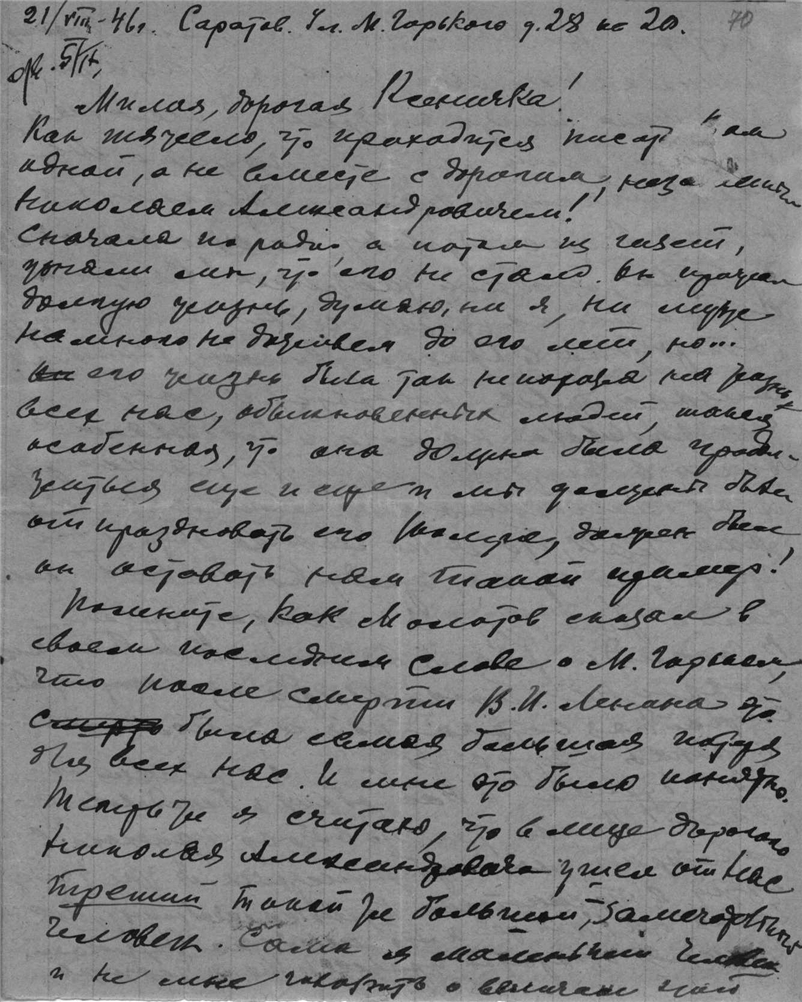 21/VIII-46г. Саратов. Ул. М. Горького д. 28 кв 20. 70
5/IX,
Милая, дорогая Ксенячка!
Как тяжело, что приходится писать Вам
одной, а не вместе с дорогим,
Николаем Александровичем!
Сначала по радио, а потом из газет,
узнали мы, что его не стало. Он прожил
долгую жизнь, думаю, ни я, ни муж
намного не доживем до его лет, но...
его жизнь была так непохожа на жизнь
всех нас, обыкновенных людей, такая
особенная, что она должна была продол-
жаться еще и еще и мы должны были
отпраздновать его должен был
он оставать нам такой пример!
Помните, как Молотов сказал в
своем последнем слове о М. Горьком,
что после смерти В.И. Ленина это
смерть была самая большая потеря
для всех нас. И мне это было понятно.
Теперь же я считаю, что в лице дорогого
Николая Александровича ушел от нас
третий такой же большой, замечательный
человек. Сама я маленький человек
и не мне говорить о величии этой